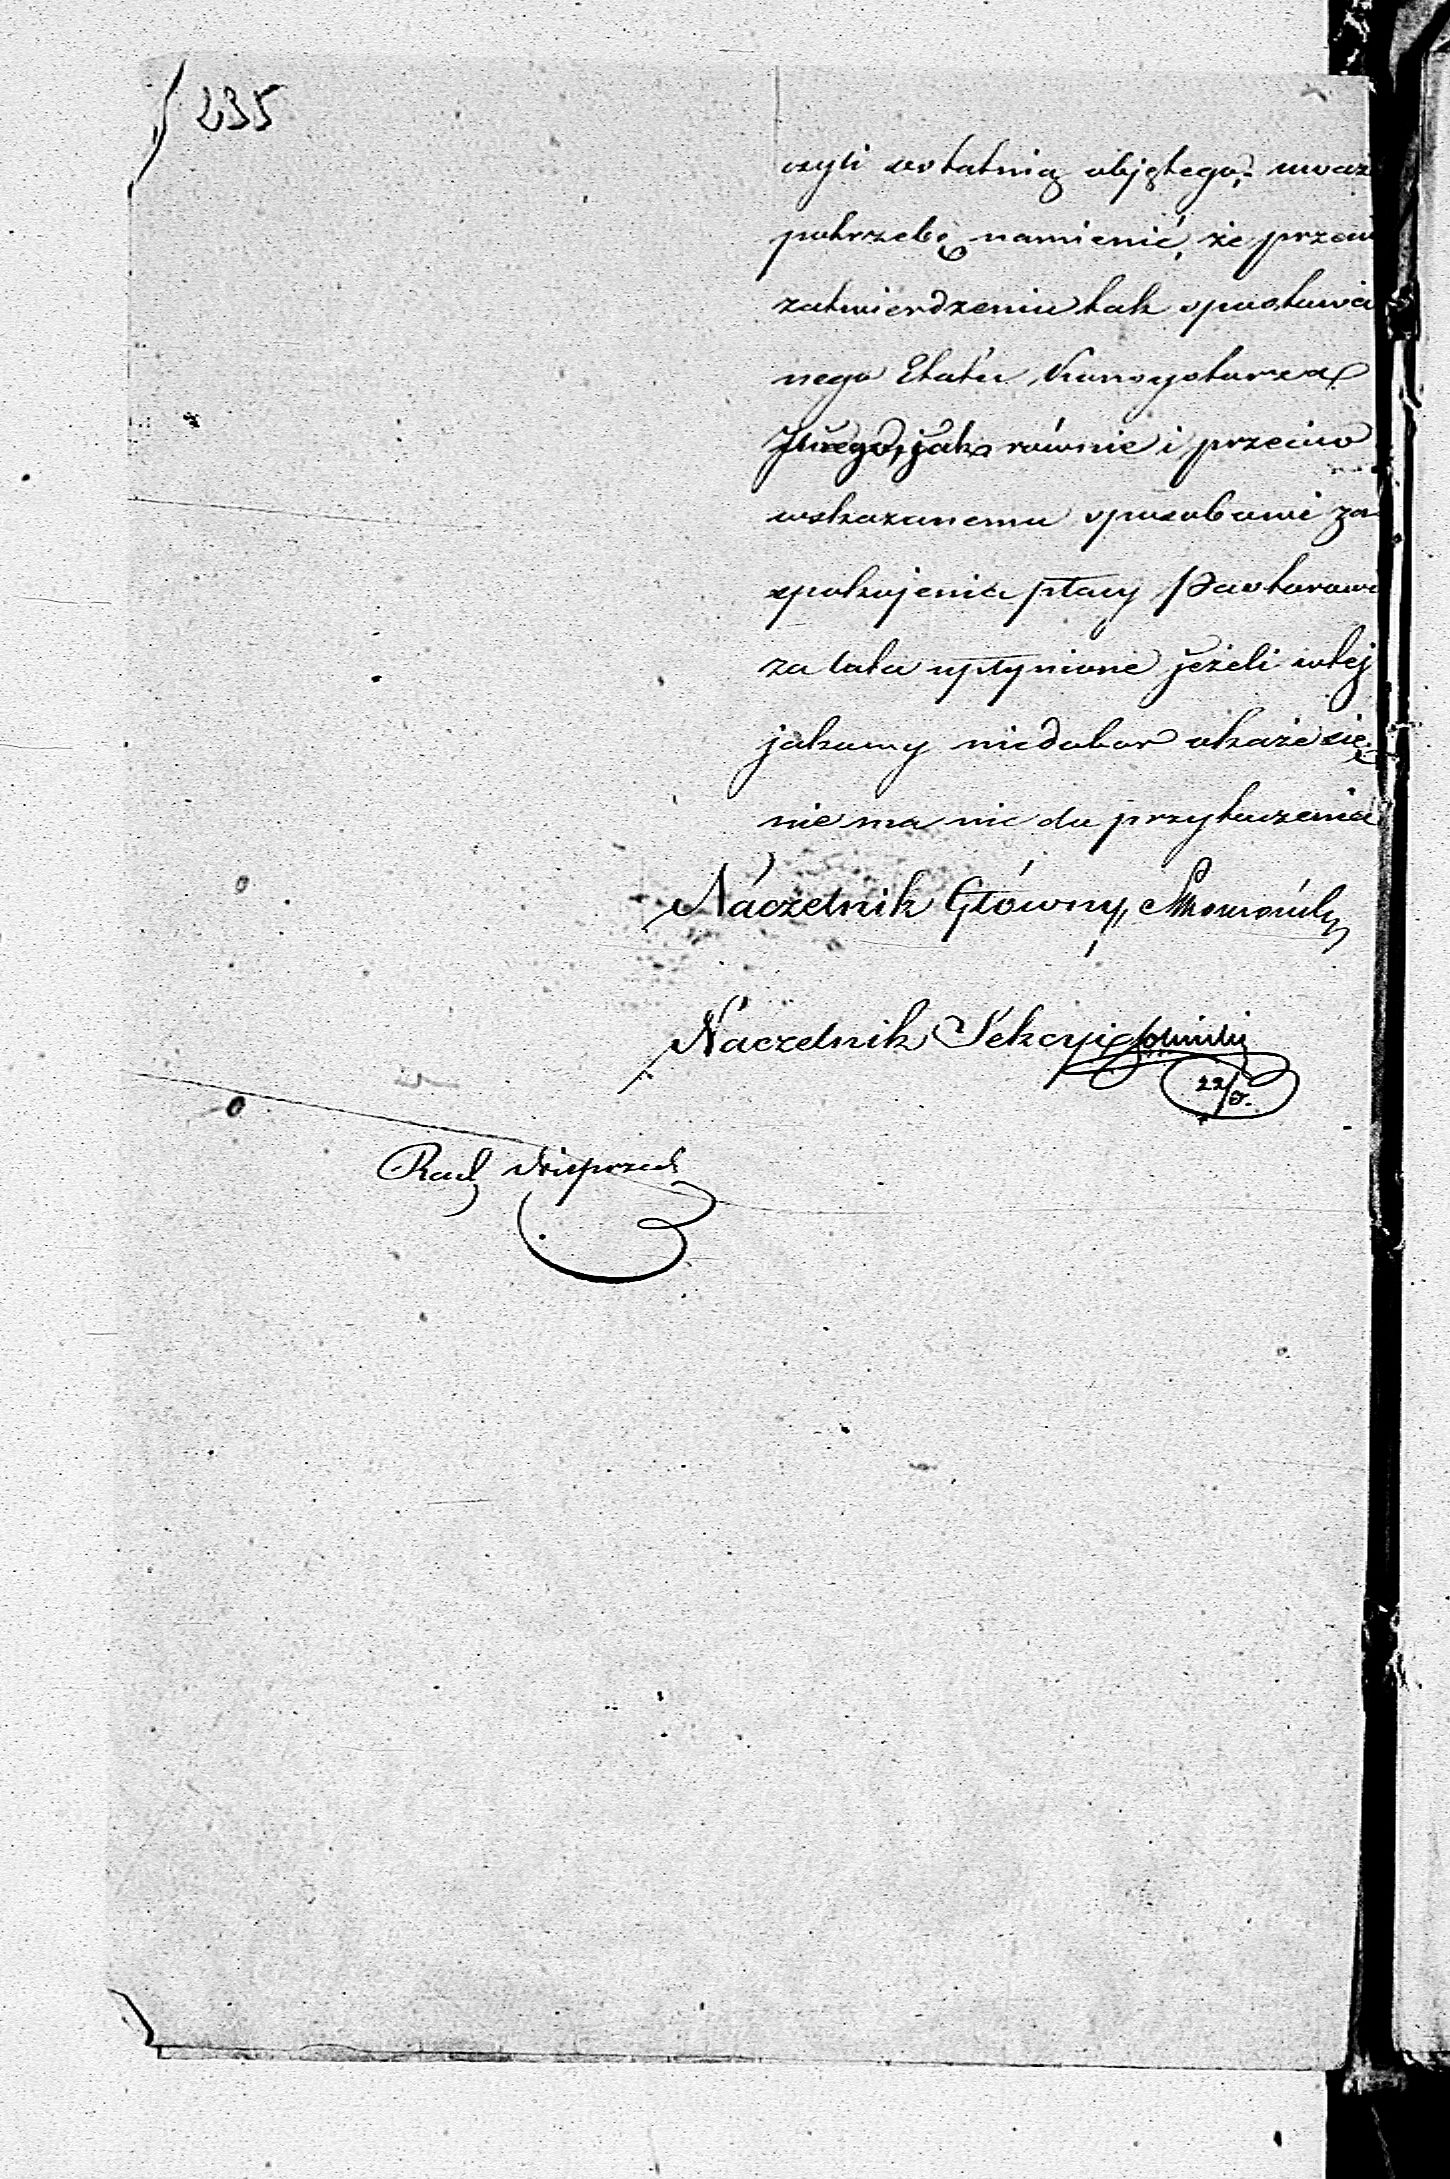 235
czyli ostatnią objętego, uważ
potrzebę namienić, że przeci
zatwierdzeniu tak spostawio
nego Etatu Konsystorza
jako równie i przeciw
wskazanemu sposobowi za
spokojenia płacy Pastorowi
za lata upłynione jeżeli w tej
jakowy niedobor okaże się
nie ma nic do przytoczenia
Naczelnik Główny
Naczelnik Sekcyi
22/8.
Rad